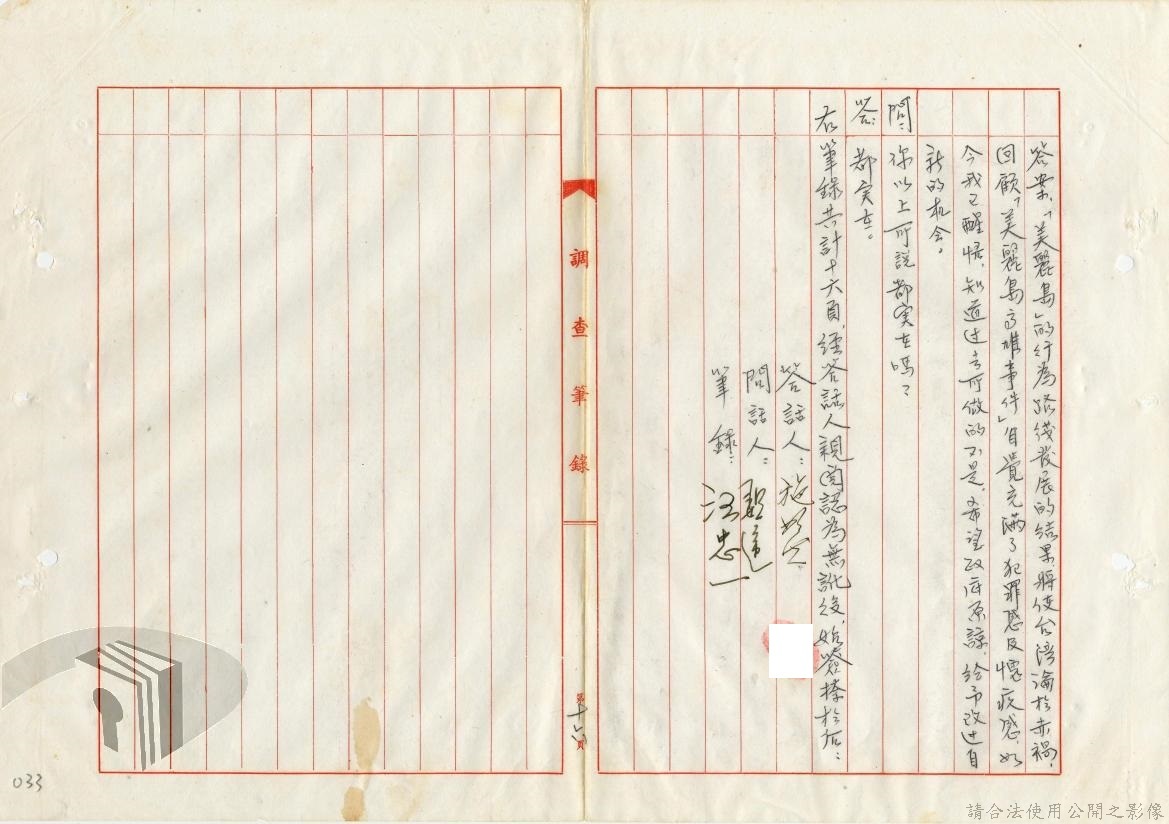 答案,「美麗島」的行為路线發展的結果將使台湾淪於赤禍,
回顧「美麗島高雄事件」自覺充滿了犯罪感及愧疚感,如
今我已醒悟,知道过去所做的不是,希望政府原諒,給予改过自
新的机会。
問:你以上所說都實在嗎?
答:都実在。
右筆錄共計十六頁,經答話人親閱認為無訛後,始簽捺於后:
答話人:施
問話人:
筆錄:汪忠一
調查筆錄
第十六頁
033
請合法使用公開之影像